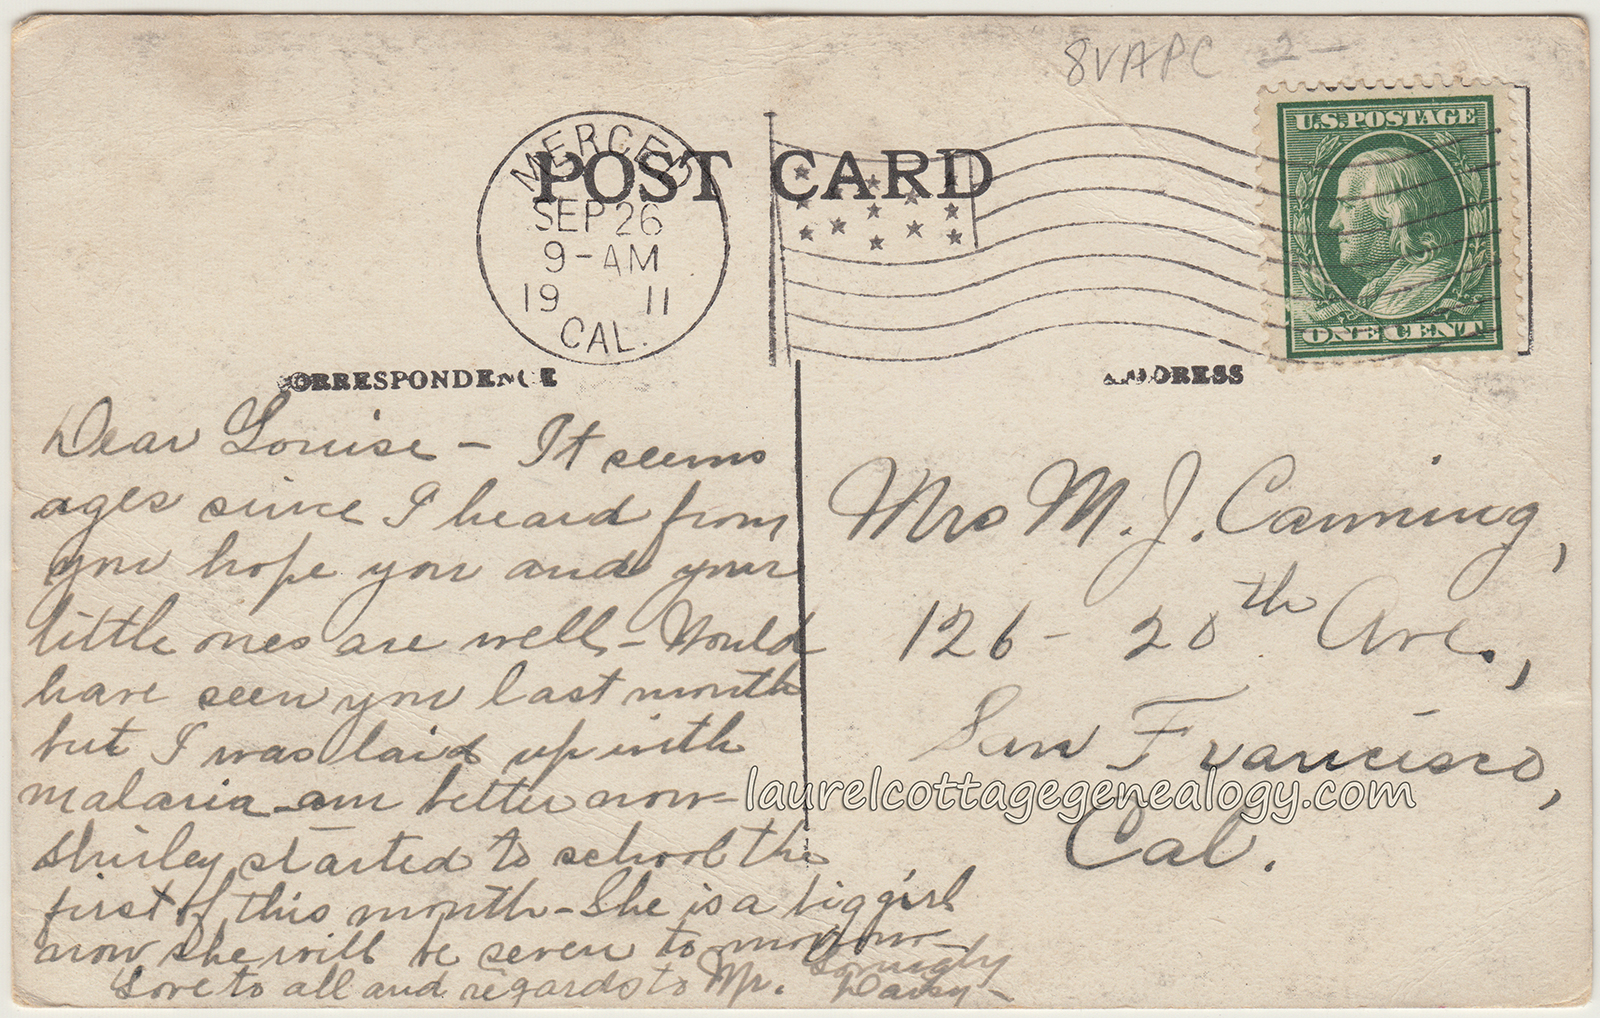 8VAPC 2-
U.S. POSTAGE
ONE CENT
MERCED
SEP 26
9-AM
19 11
CAL.
POST CARD
CORRESPONDENCE
ADDRESS
Dear Louise - It seems
ages since I heard from
you hope you and your
little ones are well, - Would
have seen you last month
but I was laid up with
malaria - am better now -
Shirley started to school the
first of this month - She is a big girl
now, she will be seven to morrow -
Love to all and regards to Mr. Lovingly
Daisy -
Mrs M. J. Canning,
126 - 20th Ave.,
San Francisco,
Cal.
laurelcottagegenealogy.com